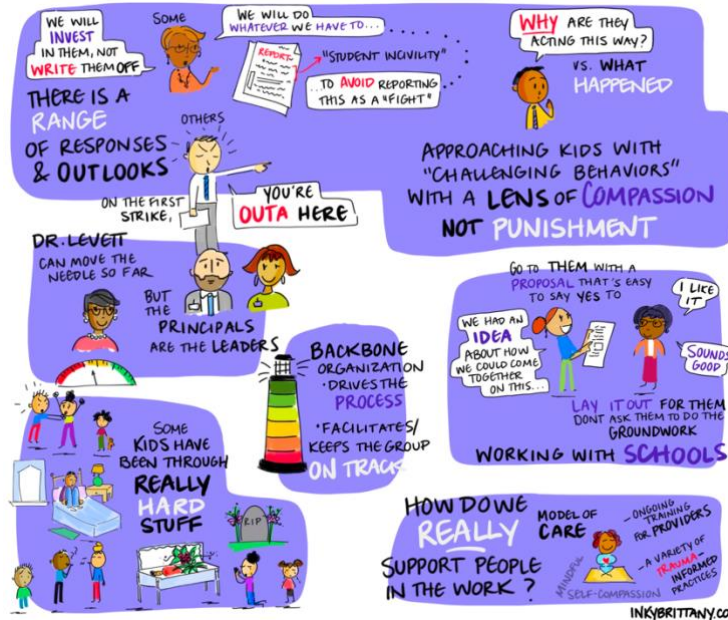 WE WILL
INVEST
IN THEM, NOT
WRITE THEM OFF
SOME
WE WILL DO
WHATEVER WE HAVE TO...
REPORT
"STUDENT INCIVILITY"
...TO AVOID REPORTING
THIS AS A "FIGHT"
THERE IS A
RANGE
OF RESPONSES
& OUTLOOKS
OTHERS
ON THE FIRST
STRIKE,
YOU'RE
OUTA HERE
WHY ARE THEY
ACTING THIS WAY?
VS. WHAT
HAPPENED
APPROACHING KIDS WITH
"CHALLENGING BEHAVIORS"
WITH A LENS OF COMPASSION
NOT PUNISHMENT
DR. LEVETT
CAN MOVE THE
NEEDLE SO FAR
BUT
THE
PRINCIPALS
ARE THE LEADERS
BACKBONE
ORGANIZATION
• DRIVES THE
PROCESS
• FACILITATES/
KEEPS THE GROUP
ON TRACK
GO TO THEM WITH A
PROPOSAL THAT'S EASY
TO SAY YES TO
WE HAD AN
IDEA
ABOUT HOW
WE COULD COME
TOGETHER
ON THIS...
I LIKE
IT
SOUNDS
GOOD
LAY IT OUT FOR THEM
DONT ASK THEM TO DO THE
GROUNDWORK
WORKING WITH SCHOOLS
SOME
KIDS HAVE
BEEN THROUGH
REALLY
HARD
STUFF
RIP
HOW DO WE
REALLY
SUPPORT PEOPLE
IN THE WORK?
MODEL OF
CARE
MINDFUL
SELF-COMPASSION
—ONGOING
TRAINING
FOR PROVIDERS
—A VARIETY OF
TRAUMA-
INFORMED
PRACTICES
INKYBRITTANY.CO